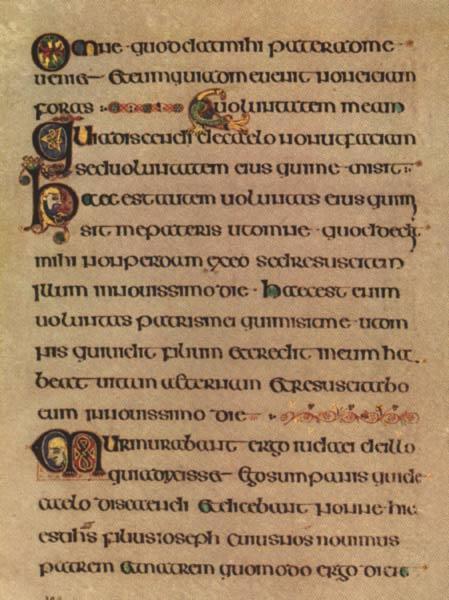 Omne quod dat mihi pater ad me
ueniet et eum qui ad me uenit non eiciam
foras uoluntatem meam
Quia discendi de caelo non ut faciam
sed uoluntatem eius qui me misit
haec est autem uoluntas eius qui mi
sit me patris ut omne quod dedit
mihi non perdam ex eo sed resuscitem
illum in nouissimo die haec est enim
uoluntas patris mei qui misit me ut om
nis qui uidit filium et credit in eum ha
beat uitam aeternam et resuscitabo
eum in nouissimo die
Murmurabant ergo iudaei de illo
quia dixisset ego sum panis qui de
caelo discendi et dicebant nonne hic
est ihs filius ioseph cuius nos nouimus
patrem et matrem quomodo ergo dicit